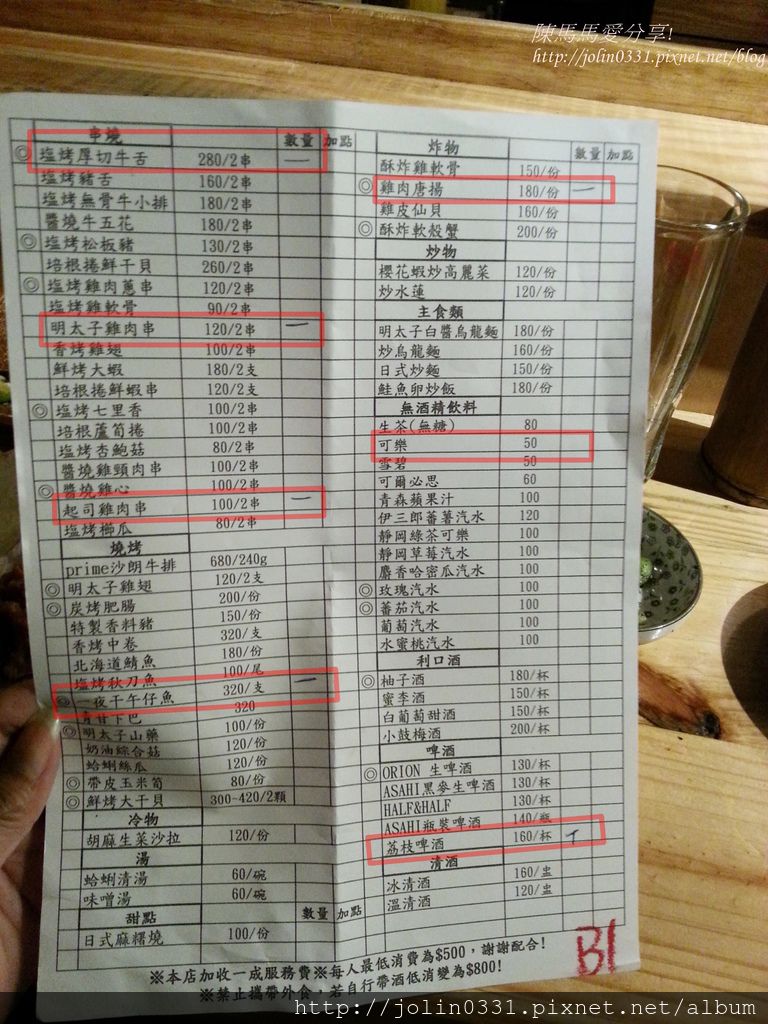 陳馬馬愛分享!
http://jolin0331.pixnet.net/blog
串燒 數量 加點
◎ 塩烤厚切牛舌 280/2串 一
塩烤豬舌 160/2串
塩烤無骨牛小排 180/2串
醬燒牛五花 180/2串
◎ 塩烤松板豬 130/2串
培根捲鮮干貝 260/2串
◎ 塩烤雞肉蔥串 120/2串
塩烤雞軟骨 90/2串
明太子雞肉串 120/2串 一
香烤雞翅 100/2串
鮮烤大蝦 180/2支
培根捲鮮蝦串 120/2支
◎ 塩烤七里香 100/2串
培根蘆筍捲 100/2串
塩烤杏鮑菇 80/2串
醬燒雞頸肉串 100/2串
◎ 醬燒雞心 100/2串
起司雞肉串 100/2串 一
塩烤櫛瓜 80/2串
燒烤
prime沙朗牛排 680/240g
◎ 明太子雞翅 120/2支
◎ 炭烤肥腸 200/份
特製香料豬 150/份
香烤中卷 320/支
北海道鯖魚 180/份
塩烤秋刀魚 100/尾
◎ 一夜干午仔魚 320/支 一
青甘下巴 320
◎ 明太子山藥 100/份
奶油綜合菇 120/份
蛤蜊絲瓜 120/份
◎ 帶皮玉米筍 80/份
◎ 鮮烤大干貝 300-420/2顆
冷物
胡麻生菜沙拉 120/份
湯
蛤蜊清湯 60/碗
味噌湯 60/碗
甜點 數量 加點
日式麻糬燒 100/份
炸物 數量 加點
酥炸雞軟骨 150/份
◎ 雞肉唐揚 180/份 一
雞皮仙貝 160/份
◎ 酥炸軟殼蟹 200/份
炒物
櫻花蝦炒高麗菜 120/份
炒水蓮 120/份
主食類
明太子白醬烏龍麵 180/份
炒烏龍麵 160/份
日式炒麵 150/份
鮭魚卵炒飯 180/份
無酒精飲料
生茶(無糖) 80
可樂 50
雪碧 50
可爾必思 60
青森蘋果汁 100
伊三郎蕃薯汽水 120
靜岡綠茶可樂 100
靜岡草莓汽水 100
麝香哈密瓜汽水 100
◎ 玫瑰汽水 100
◎ 蕃茄汽水 100
葡萄汽水 100
水蜜桃汽水 100
利口酒
◎ 柚子酒 180/杯
蜜李酒 150/杯
白葡萄甜酒 150/杯
小鼓梅酒 200/杯
啤酒
◎ ORION 生啤酒 130/杯
ASAHI黑麥生啤酒 130/杯
HALF&HALF 130/杯
ASAHI瓶裝啤酒 140/瓶
荔枝啤酒 160/杯
清酒
冰清酒 160/盅
溫清酒 120/盅
B1
※本店加收一成服務費※每人最低消費為$500，謝謝配合!
※禁止攜帶外食，若自行帶酒低消變為$800!
http://jolin0331.pixnet.net/album